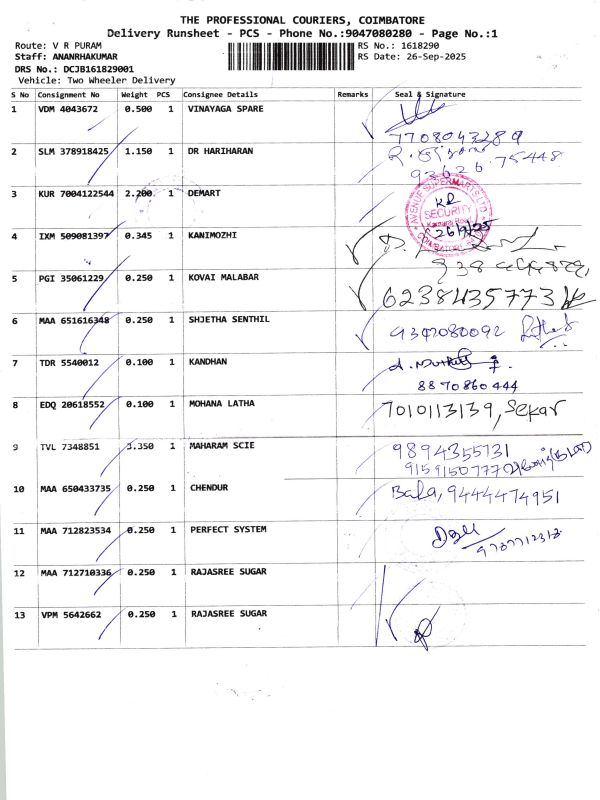 THE PROFESSIONAL COURIERS, COIMBATORE
Delivery Runsheet - PCS - Phone No.:9047080280 - Page No.:1
Route: V R PURAM
RS No.: 1618290
Staff: ANANRHAKUMAR
RS Date: 26-Sep-2025
DRS No.: DCJB161829001
Vehicle: Two Wheeler Delivery
S No Consignment No Weight PCS Consignee Details Remarks Seal & Signature
1 VDM 4043672 0.500 1 VINAYAGA SPARE
7708043289
2 SLM 378918425 1.150 1 DR HARIHARAN
93626 75448
3 KUR 7004122544 2.200 1 DEMART
AVENUE SUPERMARTS LTD
KR
SECURITY
26/9/25
4 IXM 509081397 0.345 1 KANIMOZHI
5 PGI 35061229 0.250 1 KOVAI MALABAR
6238435773
6 MAA 651616348 0.250 1 SHJETHA SENTHIL
9347080092
7 TDR 5540012 0.100 1 KANDHAN
8870860444
8 EDQ 20618552 0.100 1 MOHANA LATHA
7010113139, Sekar
9 TVL 7348851 3.350 1 MAHARAM SCIE
9894355731
9159150777
10 MAA 650433735 0.250 1 CHENDUR
Bala, 9444474951
11 MAA 712823534 0.250 1 PERFECT SYSTEM
9787712313
12 MAA 712710336 0.250 1 RAJASREE SUGAR
13 VPM 5642662 0.250 1 RAJASREE SUGAR